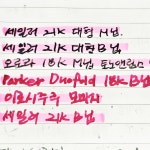 세일러 21K 대형 M닙.
세일러 21K 대형 B닙
오로라 18K M닙
Parker Duofold 18K B닙
이로시주쿠 모미지
세일러 21K B닙